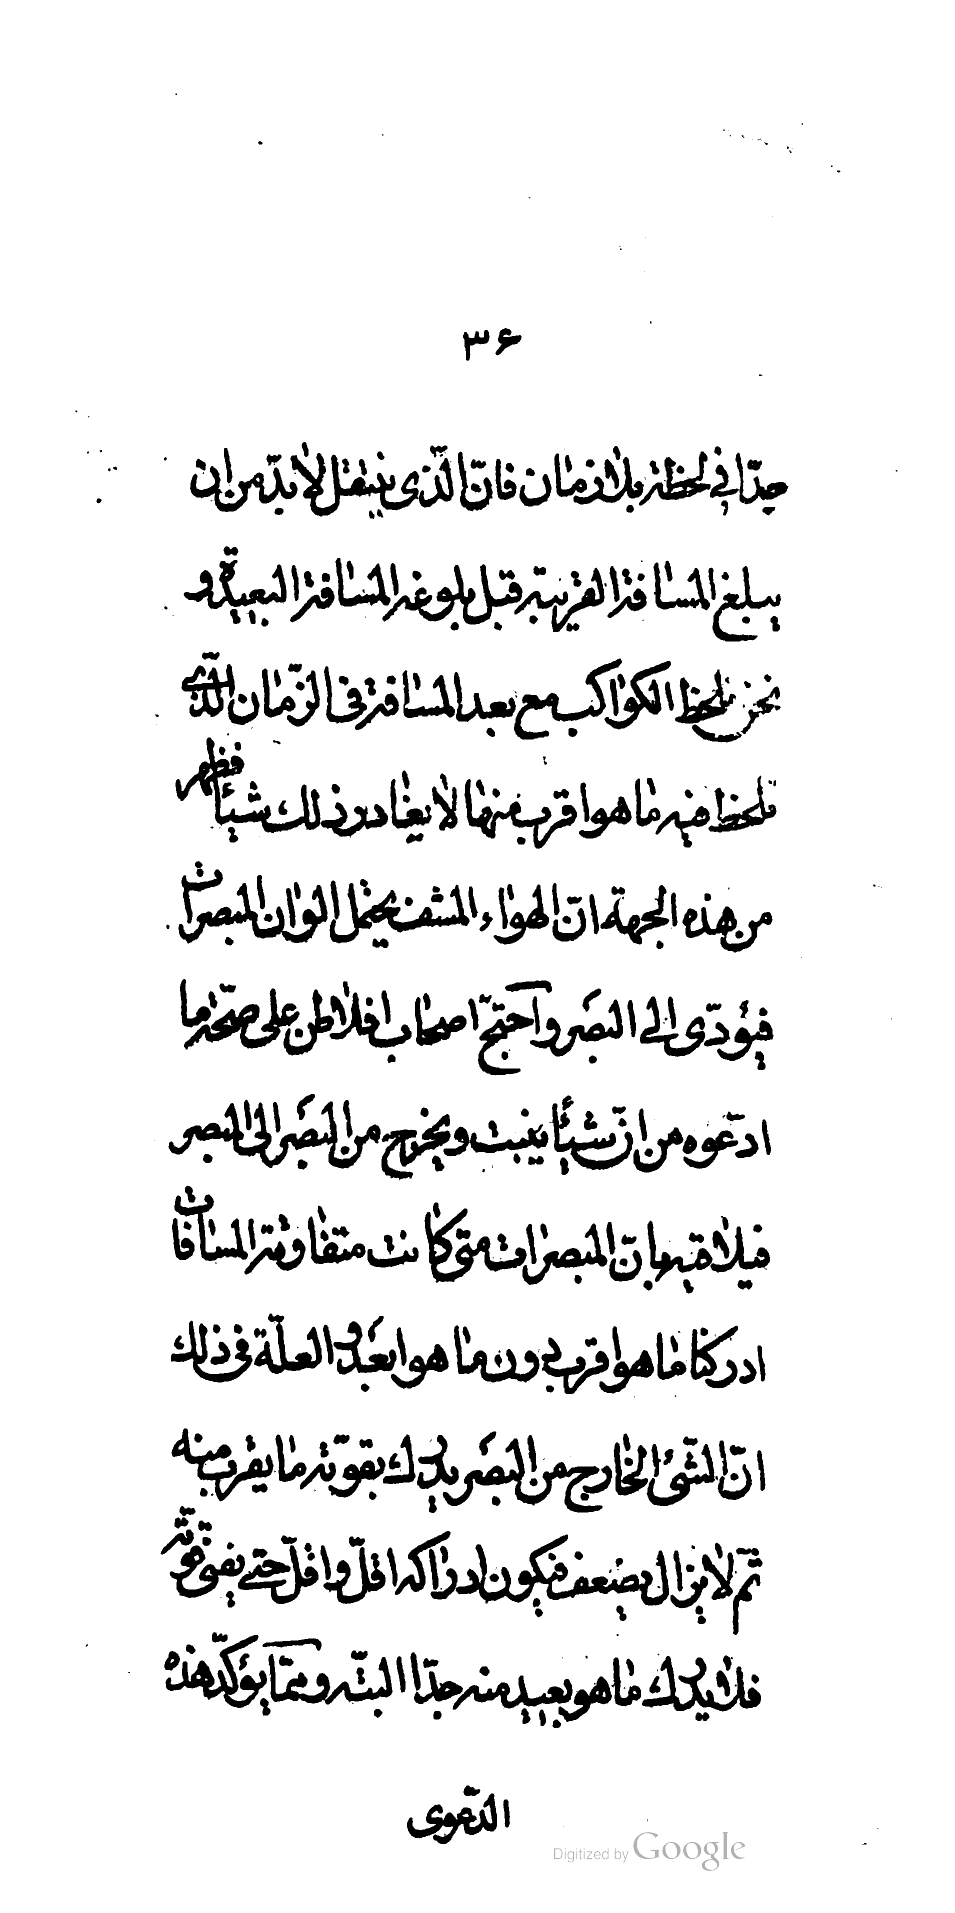 ۳۶
جدّا في لحظة بلا زمان فانّ الّذى ينتقل لا بدّ من ان
يبلغ المسافة القريبة قبل بلوغه المسافة البعيدة و
نحن نلحظ الكواكب مع بعد المسافة فى الزّمان الّذى
نلحظ فيه ما هو اقرب منها لا يغادر ذلك شيئا فظهر
من هذه الجهة انّ الهواء المشف يحتمل الوان المبصرات
فيؤدّى الى البصر و احتجّ اصحاب افلاطن على صحّة ما
ادّعوه من انّ شيئا ينبت ويخرج من البصر الى المبصر
فيلاقيه بانّ المبصرات متى كانت متفاوتة المسافات
ادركنا ما هو اقرب دون ما هو ابعد و العلّة فى ذلك
انّ الشّئ الخارج من البصر يدرك بقوّته ما يقرب منه
ثمّ لا يزال يضعف فيكون ادراكه اقلّ و اقلّ حتى يفنى قوّته
فلا يدرك ما هو بعيد منه جدّا البتّه و ممّا يؤكّد هذه
الدّعوى
Digitized by Google